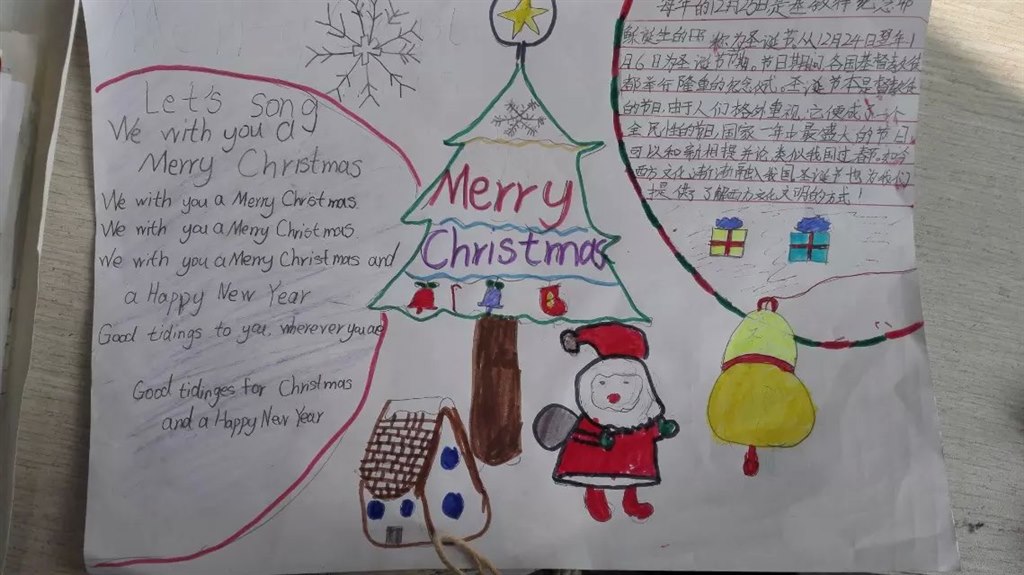 Let's song
We with you a
Merry Christmas
We with you a Merry Christmas
We with you a Merry Christmas
We with you a Merry Christmas and
a Happy New Year
Good tidings to you, wherever you are
Good tidinges for Christmas
and a Happy New Year
Merry
Christmas
每年的12月25日是基教
诞生的日 称为圣诞节从12月24日至年1
月6日为圣诞节期,节日期间各国基督教
都举行隆重的纪念仪。圣诞节本是督教
的节日,由于人们格外重视,它便成
全民性的节日,国家一年中最盛大的节日,
可以和新相提并论,类似我国过春节。
西方文化渐渐融入我国圣诞节也为我们
提供了了解西方文化文明的方式!